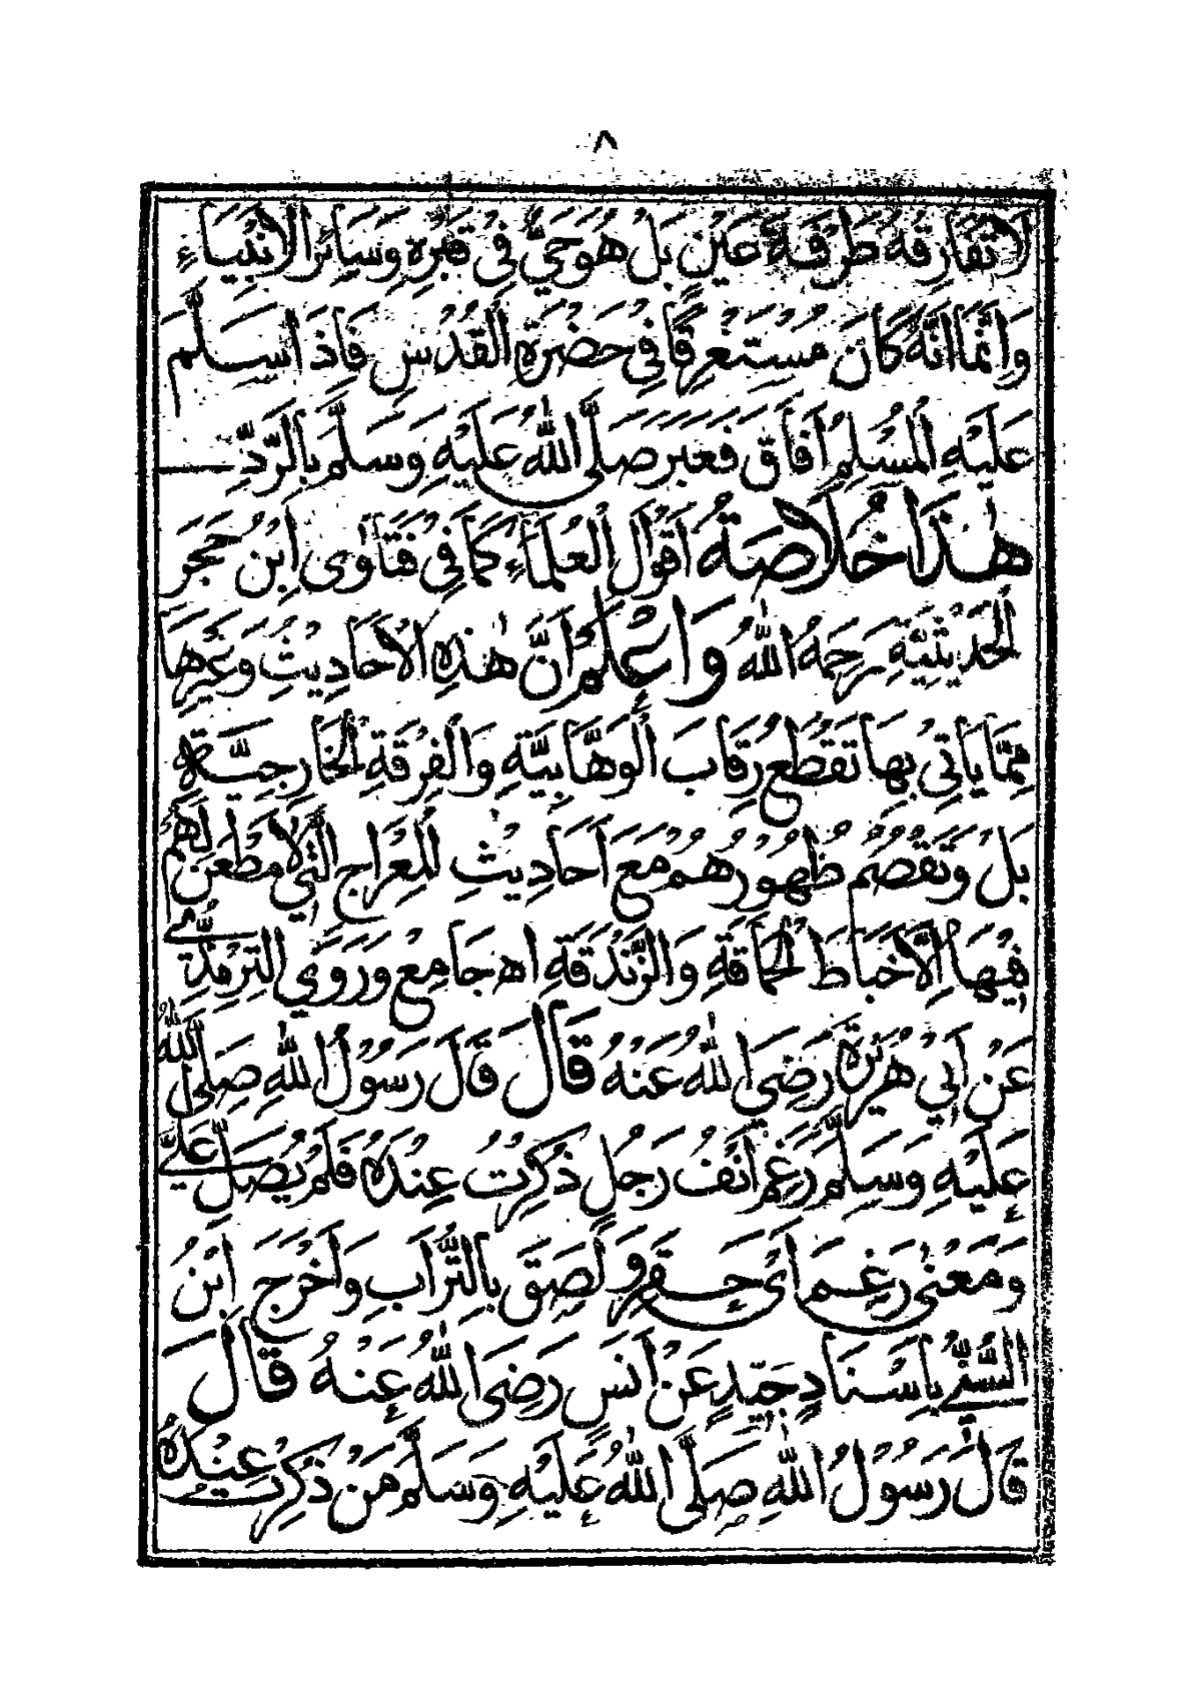 ٨
لَا تُفَارِقُهُ طَرْفَةَ عَيْنٍ بَلْ هُوَ حَيٌّ فِي قَبْرِهِ وَسَائِرُ الْأَنْبِيَاءِ
وَإِنَّمَا أَنَّهُ كَانَ مُسْتَغْرِقًا فِي حَضْرَةِ الْقُدُسِ فَإِذَا سَلَّمَ
عَلَيْهِ الْمُسَلِّمُ أَفَاقَ فَعَبَّرَ صَلَّى اللهُ عَلَيْهِ وَسَلَّمَ بِالرَّدِّ
هٰذَا خُلَاصَةُ أَقْوَالِ الْعُلَمَاءِ كَمَا فِي فَتَاوٰى ابْنِ حَجَرٍ
الْحَدِيْثِيَّةِ رَحِمَهُ اللهُ وَاعْلَمْ أَنَّ هٰذِهِ الْأَحَادِيْثَ وَغَيْرَهَا
مِمَّا يَأْتِي بِهَا تَقْطَعُ رِقَابَ الْوَهَّابِيَّةِ وَالْفِرْقَةِ الْخَارِجِيَّةِ
بَلْ وَتَقْصُمُ ظُهُوْرَهُمْ مَعَ أَحَادِيْثِ الْمِعْرَاجِ الَّتِي لَا مَطْعَنَ لَهُمْ
فِيْهَا إِلَّا خَبَاطَ الْحَمَاقَةِ وَالزَّنْدَقَةِ اه جَامِع وَرَوَى التِّرْمِذِيُّ
عَنْ أَبِيْ هُرَيْرَةَ رَضِيَ اللهُ عَنْهُ قَالَ قَالَ رَسُوْلُ اللهِ صَلَّى اللهُ
عَلَيْهِ وَسَلَّمَ رَغِمَ أَنْفُ رَجُلٍ ذُكِرْتُ عِنْدَهُ فَلَمْ يُصَلِّ عَلَيَّ
وَمَعْنٰى رَغِمَ أَيْ حَقِرَ وَلَصِقَ بِالتُّرَابِ وَأَخْرَجَ ابْنُ
السُّنِّيِّ بِإِسْنَادٍ جَيِّدٍ عَنْ أَنَسٍ رَضِيَ اللهُ عَنْهُ قَالَ
قَالَ رَسُوْلُ اللهِ صَلَّى اللهُ عَلَيْهِ وَسَلَّمَ مَنْ ذُكِرْتُ عِنْدَهُ